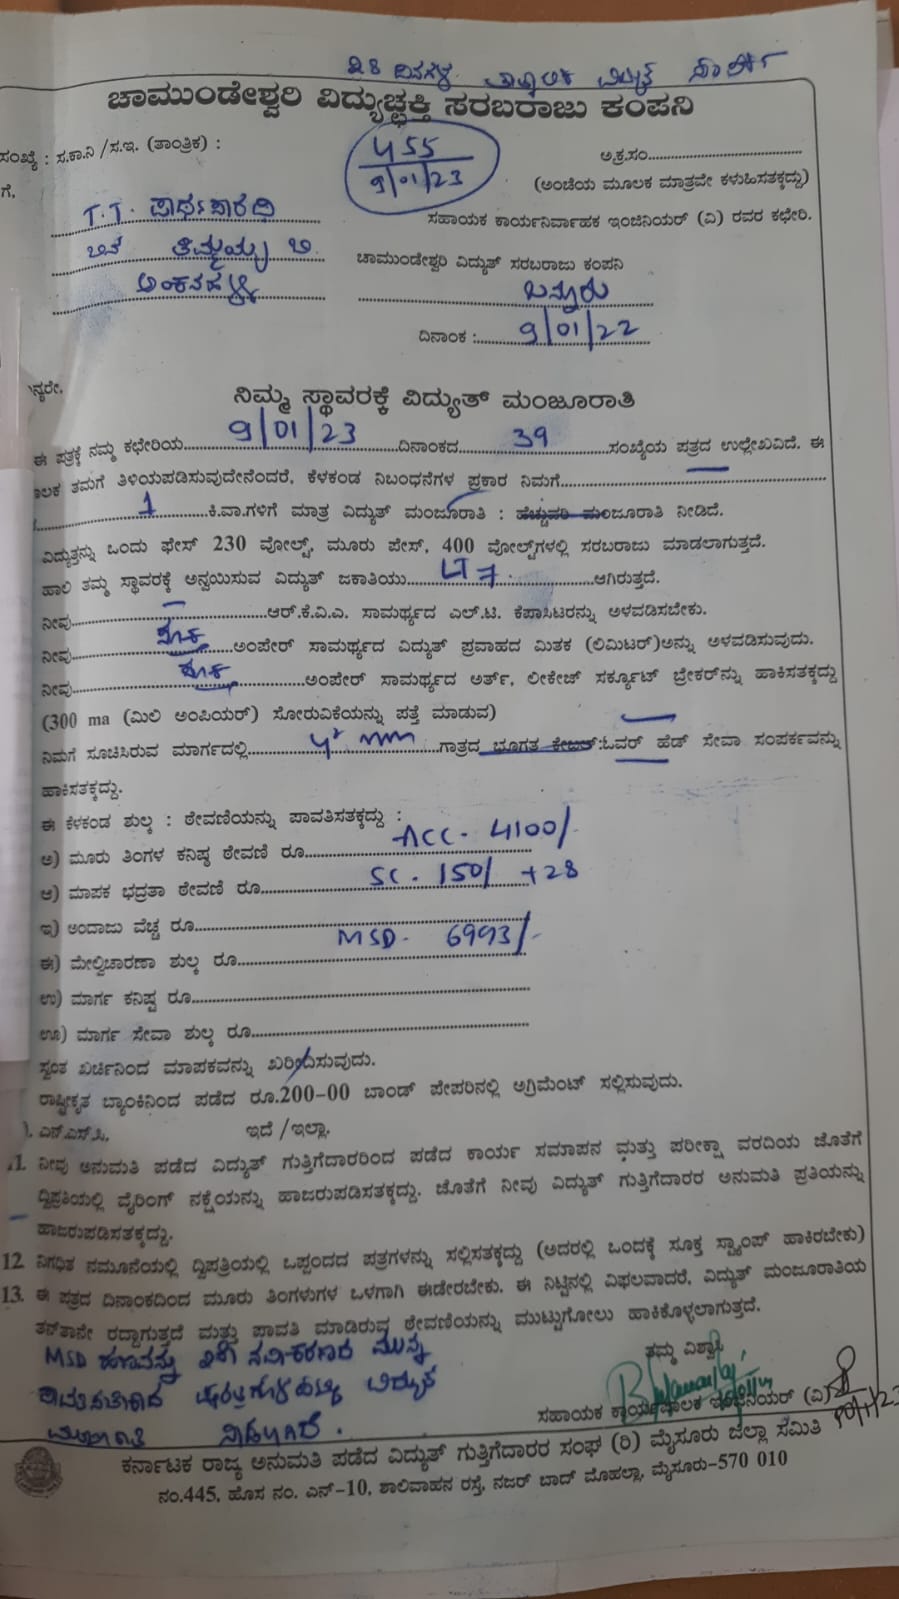 28 ದಿನಗಳ ತಾತ್ಕಾಲಿಕ ವಿದ್ಯುತ್
ಚಾಮುಂಡೇಶ್ವರಿ ವಿದ್ಯುಚ್ಛಕ್ತಿ ಸರಬರಾಜು ಕಂಪನಿ
ಸಂಖ್ಯೆ : ಸ.ಕಾ.ನಿ /ಸ.ಇ. (ತಾಂತ್ರಿಕ) :
455
9/01/23
ಅ.ಕ್ರ.ಸಂ..........
(ಅಂಚೆಯ ಮೂಲಕ ಮಾತ್ರವೇ ಕಳುಹಿಸತಕ್ಕದ್ದು)
ಗೆ,
T.T. ಪಾರ್ಥಸಾರಥಿ
ಸಹಾಯಕ ಕಾರ್ಯನಿರ್ವಾಹಕ ಇಂಜಿನಿಯರ್ (ವಿ) ರವರ ಕಛೇರಿ.
ಬಿನ್ ತಿಮ್ಮಯ್ಯ
ಚಾಮುಂಡೇಶ್ವರಿ ವಿದ್ಯುತ್ ಸರಬರಾಜು ಕಂಪನಿ
ಅಂಕನಹಳ್ಳಿ
ಬನ್ನೂರು
ದಿನಾಂಕ : 9/01/22
ನ್ಯರೇ,
ನಿಮ್ಮ ಸ್ಥಾವರಕ್ಕೆ ವಿದ್ಯುತ್ ಮಂಜೂರಾತಿ
ಈ ಪತ್ರಕ್ಕೆ ನಮ್ಮ ಕಛೇರಿಯ 9/01/23 ದಿನಾಂಕದ 39 ಸಂಖ್ಯೆಯ ಪತ್ರದ ಉಲ್ಲೇಖವಿದೆ. ಈ
ಮೂಲಕ ತಮಗೆ ತಿಳಿಯಪಡಿಸುವುದೇನೆಂದರೆ, ಕೆಳಕಂಡ ನಿಬಂಧನೆಗಳ ಪ್ರಕಾರ ನಿಮಗೆ..........
1 ಕಿ.ವಾ.ಗಳಿಗೆ ಮಾತ್ರ ವಿದ್ಯುತ್ ಮಂಜೂರಾತಿ : ಹೆಚ್ಚುವರಿ ಮಂಜೂರಾತಿ ನೀಡಿದೆ.
ವಿದ್ಯುತ್ತನ್ನು ಒಂದು ಫೇಸ್ 230 ವೋಲ್ಟ್, ಮೂರು ಪೇಸ್, 400 ವೋಲ್ಟ್‌ಗಳಲ್ಲಿ ಸರಬರಾಜು ಮಾಡಲಾಗುತ್ತದೆ.
ಹಾಲಿ ತಮ್ಮ ಸ್ಥಾವರಕ್ಕೆ ಅನ್ವಯಿಸುವ ವಿದ್ಯುತ್ ಜಕಾತಿಯು LT 7 ಆಗಿರುತ್ತದೆ.
ನೀವು..........ಆರ್.ಕೆ.ವಿ.ಎ. ಸಾಮರ್ಥ್ಯದ ಎಲ್.ಟಿ. ಕೆಪಾಸಿಟರನ್ನು ಅಳವಡಿಸಬೇಕು.
ನೀವು..........ಅಂಪೇರ್ ಸಾಮರ್ಥ್ಯದ ವಿದ್ಯುತ್ ಪ್ರವಾಹದ ಮಿತಕ (ಲಿಮಿಟರ್)ಅನ್ನು ಅಳವಡಿಸುವುದು.
ನೀವು..........ಅಂಪೇರ್ ಸಾಮರ್ಥ್ಯದ ಅರ್ತ್, ಲೀಕೇಜ್ ಸರ್ಕ್ಯೂಟ್ ಬ್ರೇಕರ್‌ನ್ನು ಹಾಕಿಸತಕ್ಕದ್ದು
(300 ma (ಮಿಲಿ ಅಂಪಿಯರ್) ಸೋರುವಿಕೆಯನ್ನು ಪತ್ತೆ ಮಾಡುವ)
ನಿಮಗೆ ಸೂಚಿಸಿರುವ ಮಾರ್ಗದಲ್ಲಿ 4² mm ಗಾತ್ರದ ಭೂಗತ ಕೇಬಲ್:ಓವರ್ ಹೆಡ್ ಸೇವಾ ಸಂಪರ್ಕವನ್ನು
ಹಾಕಿಸತಕ್ಕದ್ದು.
ಈ ಕೆಳಕಂಡ ಶುಲ್ಕ : ಠೇವಣಿಯನ್ನು ಪಾವತಿಸತಕ್ಕದ್ದು :
ಅ) ಮೂರು ತಿಂಗಳ ಕನಿಷ್ಠ ಠೇವಣಿ ರೂ. ACC. 4100/-
ಆ) ಮಾಪಕ ಭದ್ರತಾ ಠೇವಣಿ ರೂ. SC. 150/ +28
ಇ) ಅಂದಾಜು ವೆಚ್ಚ ರೂ..........
ಈ) ಮೇಲ್ವಿಚಾರಣಾ ಶುಲ್ಕ ರೂ. MSD. 6993/-
ಉ) ಮಾರ್ಗ ಕನಿಷ್ಟ ರೂ..........
ಊ) ಮಾರ್ಗ ಸೇವಾ ಶುಲ್ಕ ರೂ..........
ಸ್ವಂತ ಖರ್ಚಿನಿಂದ ಮಾಪಕವನ್ನು ಖರೀದಿಸುವುದು.
ರಾಷ್ಟ್ರೀಕೃತ ಬ್ಯಾಂಕಿನಿಂದ ಪಡೆದ ರೂ.200-00 ಬಾಂಡ್ ಪೇಪರಿನಲ್ಲಿ ಅಗ್ರಿಮೆಂಟ್ ಸಲ್ಲಿಸುವುದು.
). ಎನ್.ಎಸ್.ಸಿ. ಇದೆ /ಇಲ್ಲಾ.
11. ನೀವು ಅನುಮತಿ ಪಡೆದ ವಿದ್ಯುತ್ ಗುತ್ತಿಗೆದಾರರಿಂದ ಪಡೆದ ಕಾರ್ಯ ಸಮಾಪನ ಮತ್ತು ಪರೀಕ್ಷಾ ವರದಿಯ ಜೊತೆಗೆ
ದ್ವಿಪ್ರತಿಯಲ್ಲಿ ವೈರಿಂಗ್ ನಕ್ಷೆಯನ್ನು ಹಾಜರುಪಡಿಸತಕ್ಕದ್ದು. ಜೊತೆಗೆ ನೀವು ವಿದ್ಯುತ್ ಗುತ್ತಿಗೆದಾರರ ಅನುಮತಿ ಪ್ರತಿಯನ್ನು
ಹಾಜರುಪಡಿಸತಕ್ಕದ್ದು.
12. ನಿಗಧಿತ ನಮೂನೆಯಲ್ಲಿ ದ್ವಿಪ್ರತಿಯಲ್ಲಿ ಒಪ್ಪಂದದ ಪತ್ರಗಳನ್ನು ಸಲ್ಲಿಸತಕ್ಕದ್ದು (ಅದರಲ್ಲಿ ಒಂದಕ್ಕೆ ಸೂಕ್ತ ಸ್ಟ್ಯಾಂಪ್ ಹಾಕಿರಬೇಕು)
13. ಈ ಪತ್ರದ ದಿನಾಂಕದಿಂದ ಮೂರು ತಿಂಗಳುಗಳ ಒಳಗಾಗಿ ಈಡೇರಬೇಕು. ಈ ನಿಟ್ಟಿನಲ್ಲಿ ವಿಫಲವಾದರೆ, ವಿದ್ಯುತ್ ಮಂಜೂರಾತಿಯ
ತನ್‌ತಾನೇ ರದ್ದಾಗುತ್ತದೆ ಮತ್ತು ಪಾವತಿ ಮಾಡಿರುವ ಠೇವಣಿಯನ್ನು ಮುಟ್ಟುಗೋಲು ಹಾಕಿಕೊಳ್ಳಲಾಗುತ್ತದೆ.
MSD ಹಣವನ್ನು ನವೀಕರಣದ ಮುನ್ನ
ತಮ್ಮ ವಿಶ್ವಾಸಿ
ವಿದ್ಯುತ್
ಸಹಾಯಕ ಕಾರ್ಯಪಾಲಕ ಇಂಜಿನಿಯರ್ (ವಿ)
ಮಂಜೂರಾತಿ ನೀಡಲಾಗಿದೆ.
ಕರ್ನಾಟಕ ರಾಜ್ಯ ಅನುಮತಿ ಪಡೆದ ವಿದ್ಯುತ್ ಗುತ್ತಿಗೆದಾರರ ಸಂಘ (ರಿ) ಮೈಸೂರು ಜಿಲ್ಲಾ ಸಮಿತಿ
ನಂ.445, ಹೊಸ ನಂ. ಎನ್-10, ಶಾಲಿವಾಹನ ರಸ್ತೆ, ನಜರ್ ಬಾದ್ ಮೊಹಲ್ಲಾ, ಮೈಸೂರು-570 010